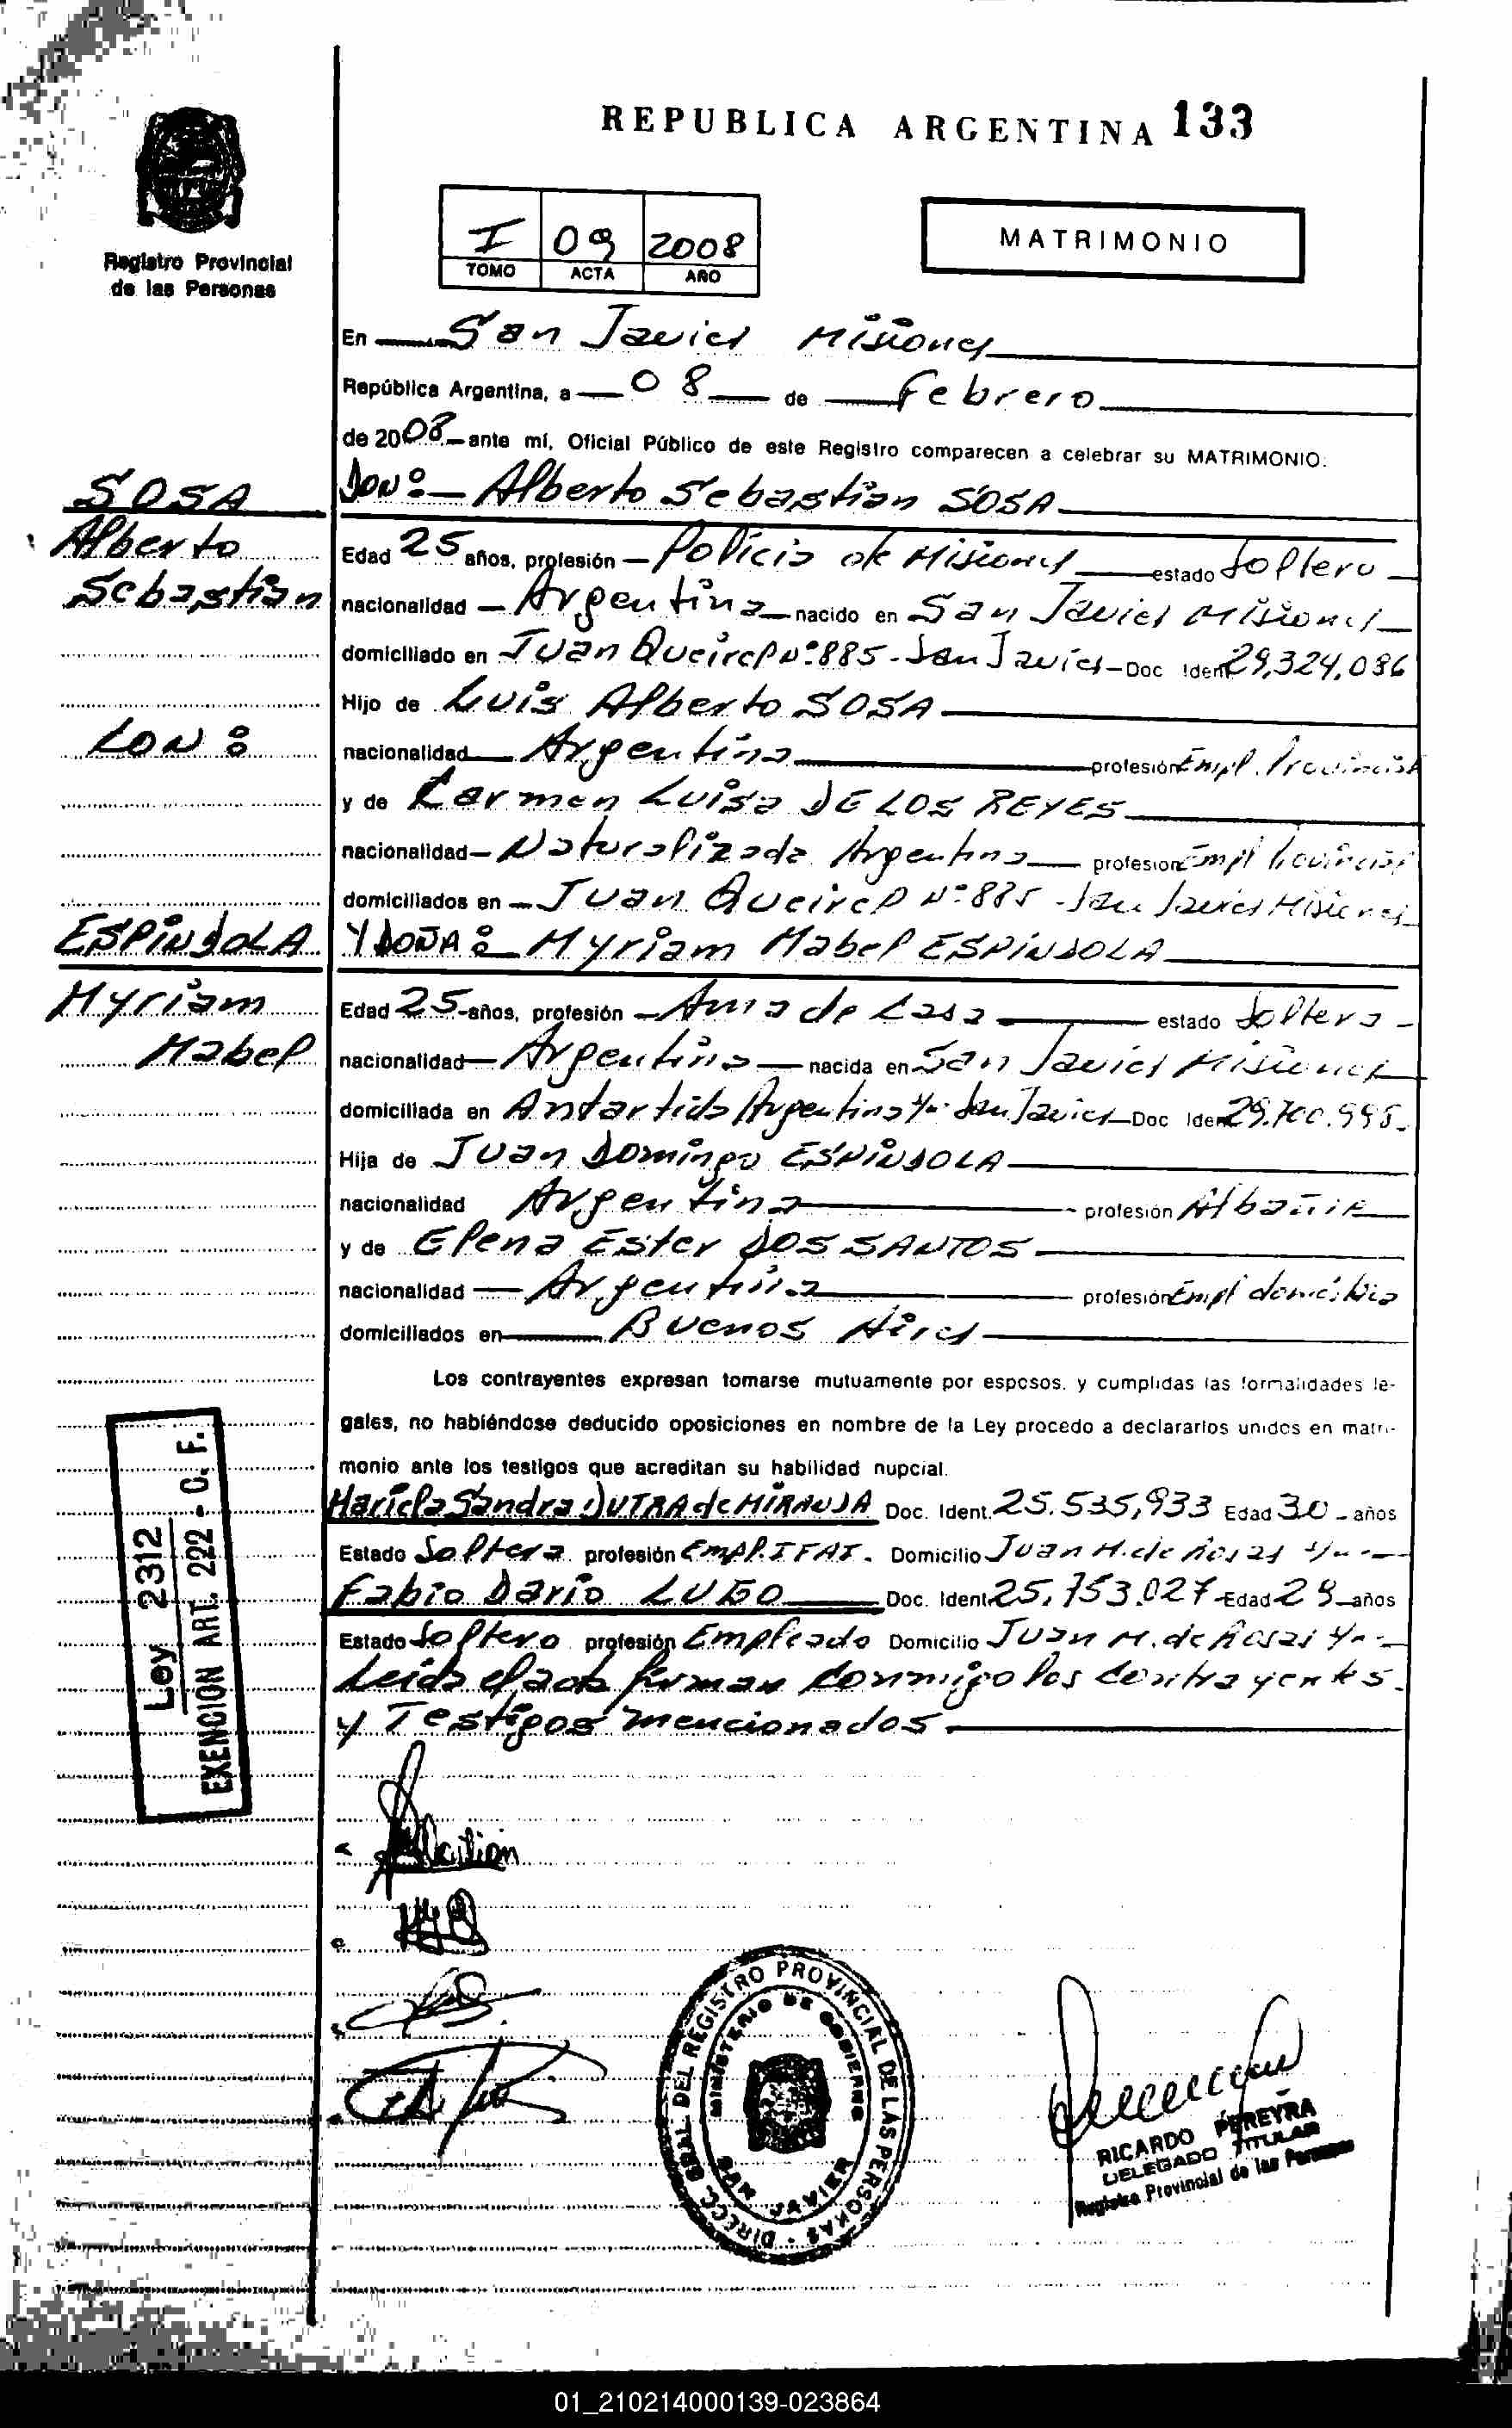 REPUBLICA ARGENTINA 133
Registro Provincial
de las Personas
I 09 2008
TOMO ACTA AÑO
MATRIMONIO
En San Javier Misiones
República Argentina, a 08 de Febrero
de 2008 ante mí, Oficial Público de este Registro comparecen a celebrar su MATRIMONIO:
SOSA
Alberto
Sebastian
CON:
ESPINDOLA
Myriam
Mabel
DON: Alberto Sebastian SOSA
Edad 25 años, profesión Policia de Misiones estado Soltero
nacionalidad Argentina nacido en San Javier Misiones
domiciliado en Juan Queirel Nº 885 - San Javier - Doc Ident 29,324,086
Hijo de Luis Alberto SOSA
nacionalidad Argentina profesión Empl. Provincial
y de Carmen Luisa DE LOS REYES
nacionalidad Naturalizada Argentina profesion Empl Provincial
domiciliados en Juan Queirel Nº 885 - San Javier Misiones
Y DOÑA: Myriam Mabel ESPINDOLA
Edad 25 años, profesión Ama de Casa estado Soltera
nacionalidad Argentina nacida en San Javier Misiones
domiciliada en Antartida Argentina San Javier Doc Ident
Hija de Juan Domingo ESPINDOLA
nacionalidad Argentina profesión Albañil
y de Elena Ester DOS SANTOS
nacionalidad Argentina profesión Empl domestica
domiciliados en Buenos Aires
Los contrayentes expresan tomarse mutuamente por esposos, y cumplidas las formalidades le-
gales, no habiéndose deducido oposiciones en nombre de la Ley procedo a declararlos unidos en matri-
monio ante los testigos que acreditan su habilidad nupcial.
Mariela Sandra DUTRA de MIRANDA Doc. Ident. 25.535,933 Edad 30 - años
Estado Soltera profesión Empl. IFAI. Domicilio Juan M. de Rosas
Fabio Dario LUGO Doc. Ident 25,753.027 Edad 29 años
Estado Soltero profesión Empleado Domicilio Juan M. de Rosas
Leida el acta firman conmigo los contrayentes
y Testigos mencionados.
Ley 2312
EXENCION ART. 222 - C. F.
DIRECC. GRAL. DEL REGISTRO PROVINCIAL DE LAS PERSONAS
MINISTERIO DE GOBIERNO
SAN JAVIER
RICARDO PEREYRA
DELEGADO TITULAR
Registro Provincial de las Personas
01_210214000139-023864